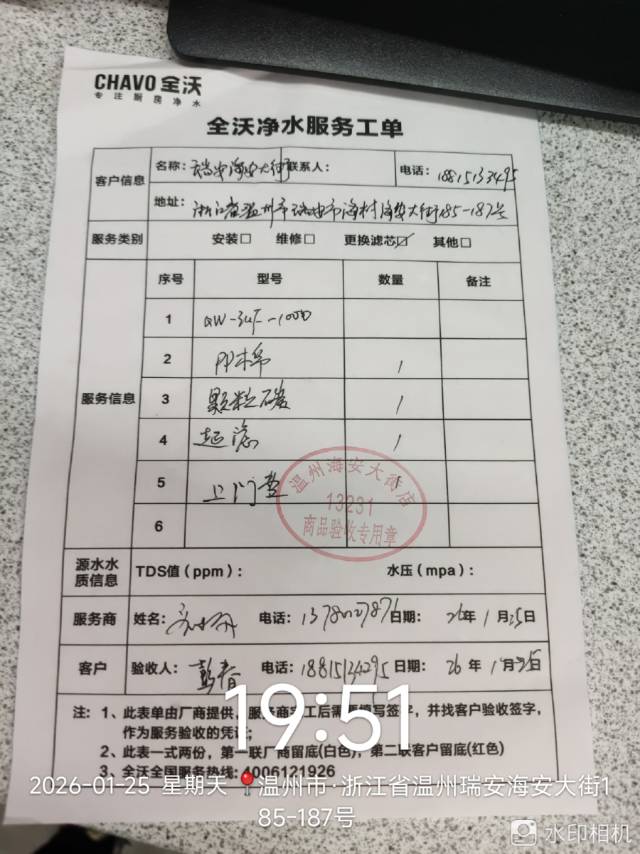 CHAVO 全沃
专注厨房净水
全沃净水服务工单
客户信息 名称：瑞安海安大街 联系人： 电话：18815134295
地址：浙江省温州市瑞安市海村海安大街185-187号
服务类别 安装□ 维修□ 更换滤芯☑ 其他□
服务信息 序号 型号 数量 备注
1
2 PP棉 1
3 颗粒碳 1
4 超滤 1
5 上门费 1
6
温州海安大药店
13231
商品验收专用章
源水水质信息 TDS值（ppm）： 水压（mpa）：
服务商 姓名： 电话： 日期：26年1月25日
客户 验收人：彭春 电话：18815134295 日期：26年1月25日
注：1、此表单由厂商提供，服务商完工后需要填写签字，并找客户验收签字，
作为服务验收的凭证；
2、此表一式两份，第一联厂商留底(白色)，第二联客户留底(红色)
3、全沃全国服务热线：4006121926
19:51
2026-01-25 星期天 温州市·浙江省温州瑞安海安大街1
85-187号
水印相机